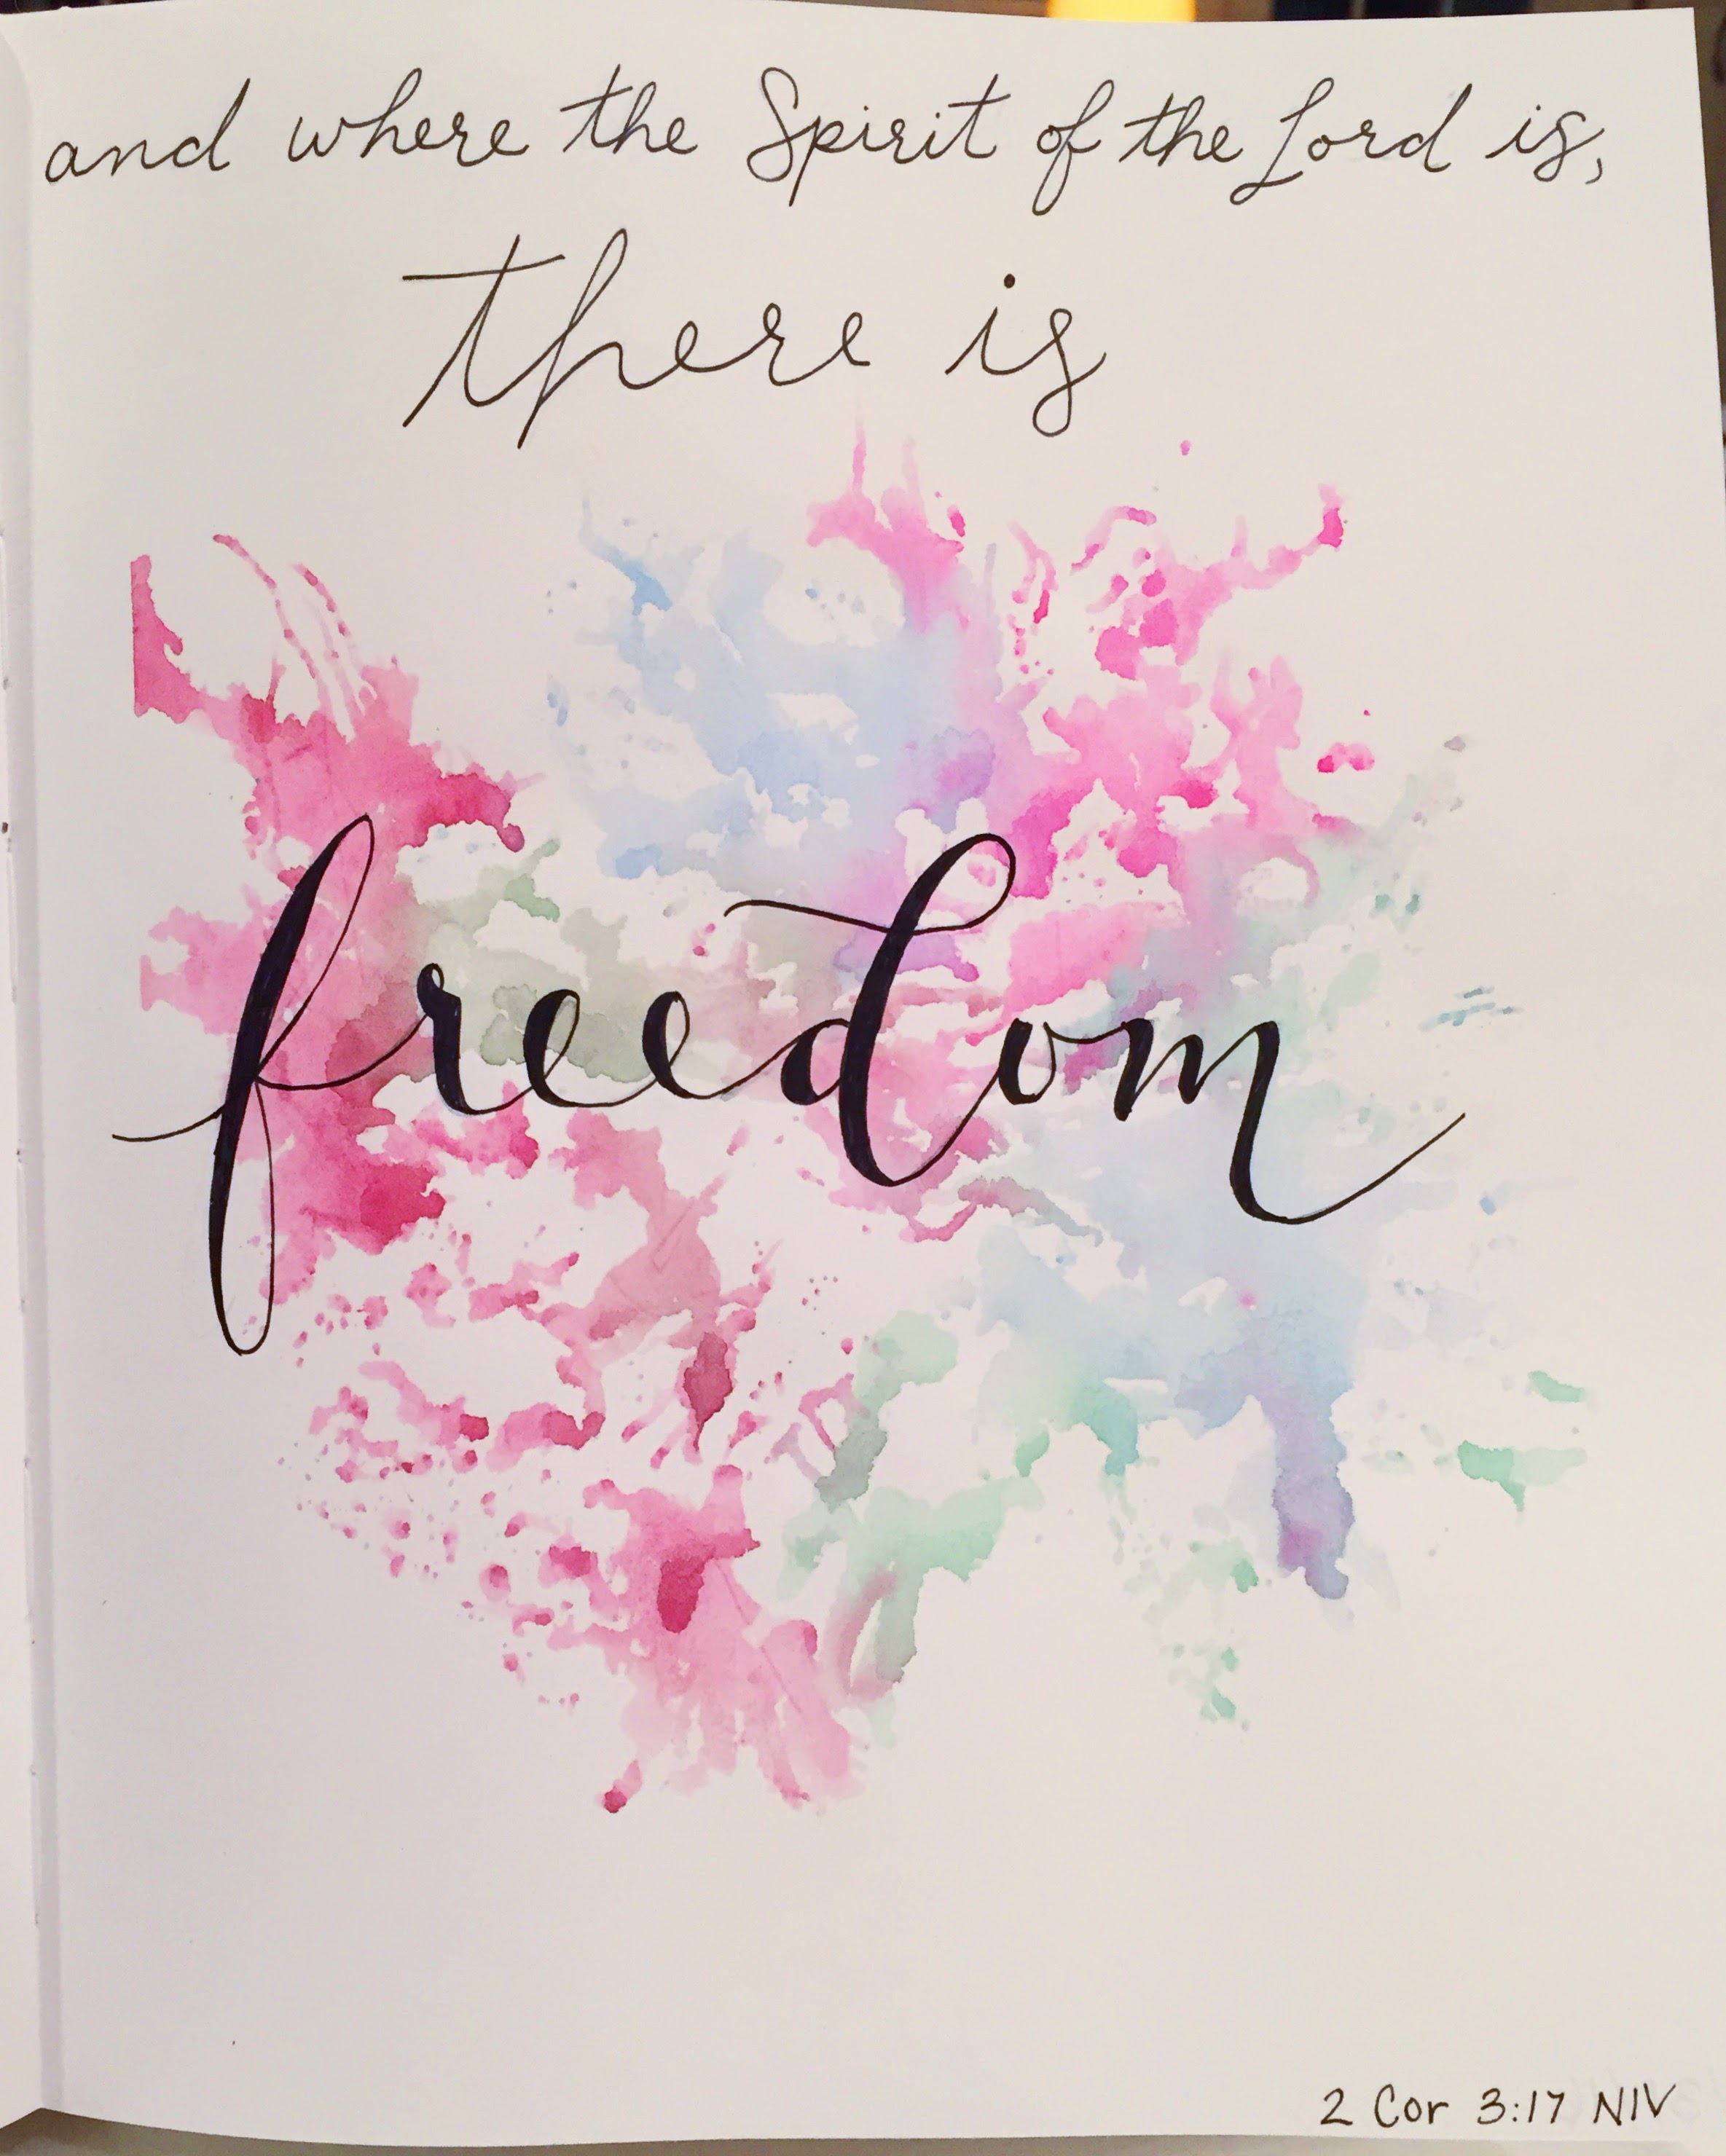 and where the Spirit of the Lord is,
there is
freedom
2 Cor 3:17 NIV